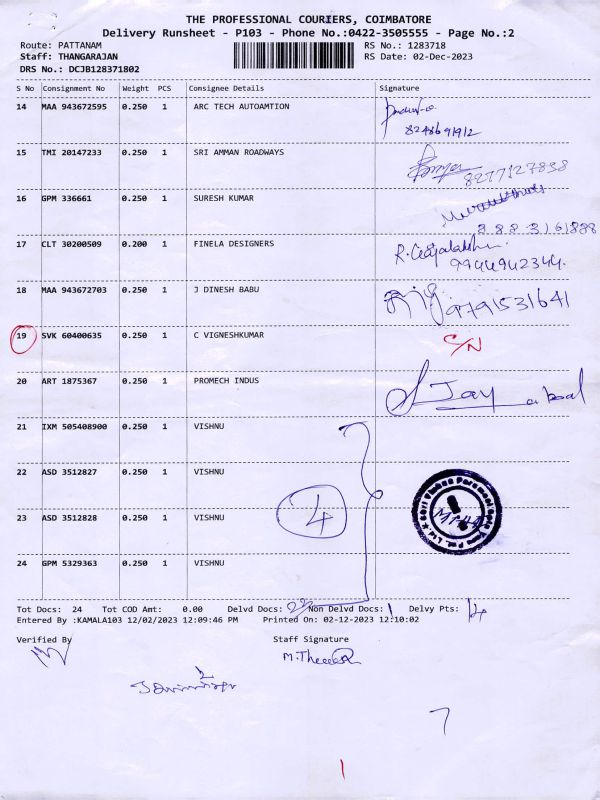 THE PROFESSIONAL COURIERS, COIMBATORE
Delivery Runsheet - P103 - Phone No.:0422-3505555 - Page No.:2
Route: PATTANAM RS No.: 1283718
Staff: THANGARAJAN RS Date: 02-Dec-2023
DRS No.: DCJB128371802
S No Consignment No Weight PCS Consignee Details Signature
14 MAA 943672595 0.250 1 ARC TECH AUTOAMTION
8248691912
15 TMI 20147233 0.250 1 SRI AMMAN ROADWAYS
8277127838
16 GPM 336661 0.250 1 SURESH KUMAR
17 CLT 30200509 0.200 1 FINELA DESIGNERS
9944942344
18 MAA 943672703 0.250 1 J DINESH BABU
9791531641
19 SVK 60400635 0.250 1 C VIGNESHKUMAR C/N
20 ART 1875367 0.250 1 PROMECH INDUS
21 IXM 505408900 0.250 1 VISHNU
22 ASD 3512827 0.250 1 VISHNU
4
23 ASD 3512828 0.250 1 VISHNU
24 GPM 5329363 0.250 1 VISHNU
Tot Docs: 24 Tot COD Amt: 0.00 Delvd Docs: Non Delvd Docs: 1 Delvy Pts: 14
Entered By :KAMALA103 12/02/2023 12:09:46 PM Printed On: 02-12-2023 12:10:02
Verified By Staff Signature
2
7
1